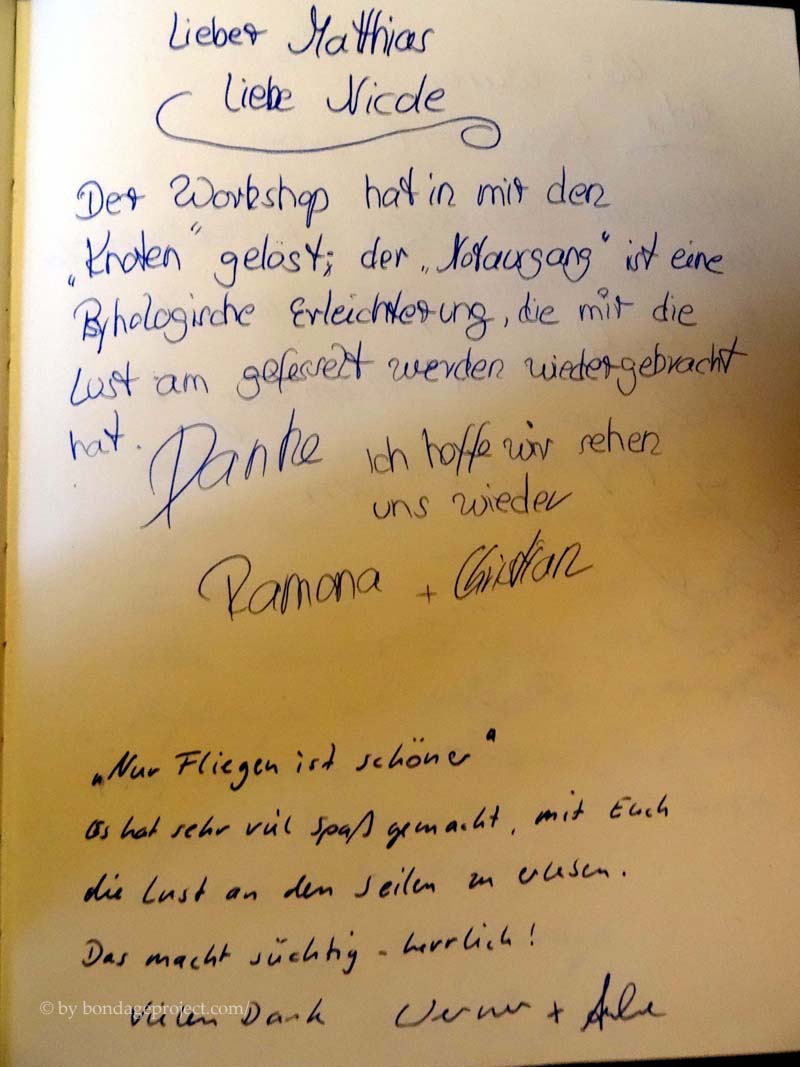 Lieber Matthias
liebe Nicole
Der Workshop hat in mir den
„Knoten“ gelöst; der „Notausgang“ ist eine
Psyhologische Erleichterung, die mir die
Lust am gefesselt werden wiedergebracht
hat. Danke ich hoffe wir sehen
uns wieder
Ramona + Christian
„Nur Fliegen ist schöner“
Es hat sehr viel Spaß gemacht, mit Euch
die Lust an den Seilen zu
Das macht süchtig - herrlich!
© by bondageproject.com/
Vielen Dank Werner +